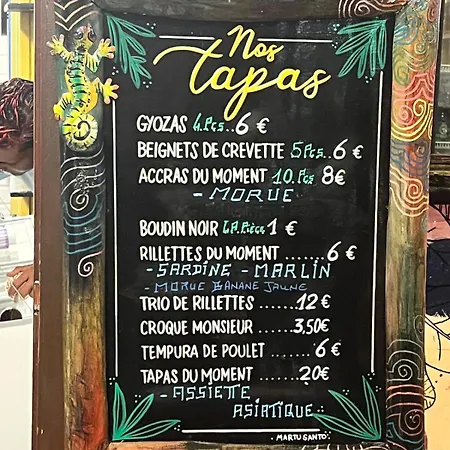 Nos
tapas
GYOZAS 4 Pcs..6 €
BEIGNETS DE CREVETTE 5 Pcs..6 €
ACCRAS DU MOMENT 10.Pcs 8€
- MORUE
BOUDIN NOIR LA Pièce 1 €
RILLETTES DU MOMENT .......6 €
- SARDINE - MARLIN
- MORUE BANANE JAUNE
TRIO DE RILLETTES .......12 €
CROQUE MONSIEUR ......3,50€
TEMPURA DE POULET ......6 €
TAPAS DU MOMENT .......20€
- ASSIETTE
ASIATIQUE
- MARTU SANTO